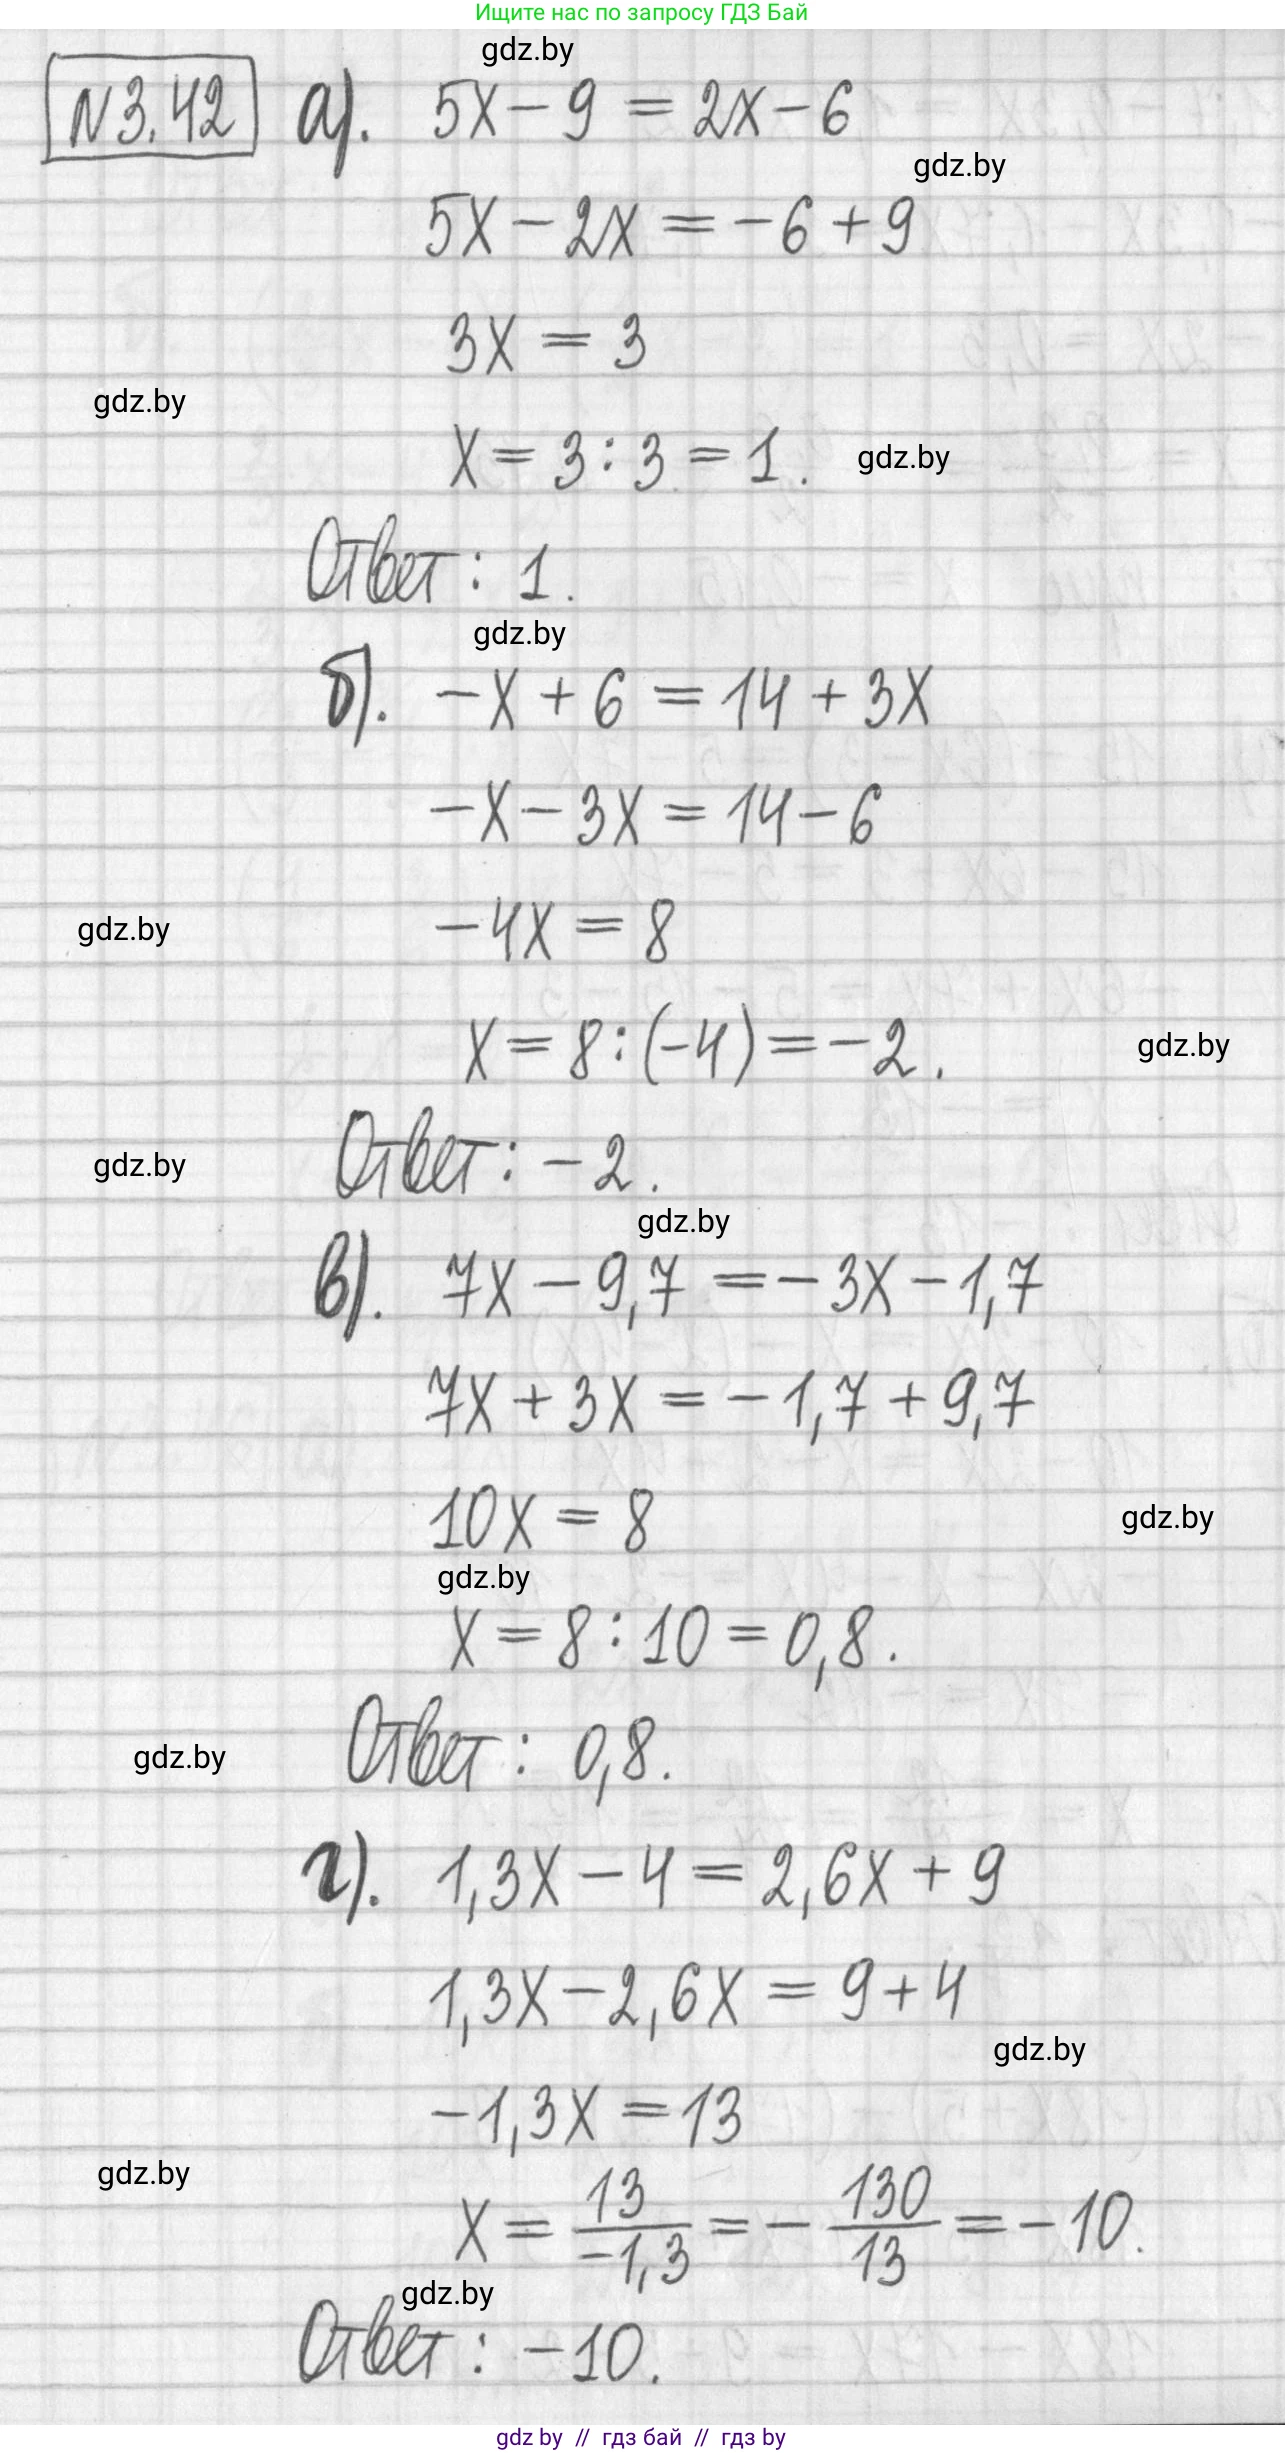 Ищите нас по запросу ГДЗ Бай
gdz.by
N3.42 а). 5x - 9 = 2x - 6
gdz.by
5x - 2x = -6 + 9
3x = 3
gdz.by
x = 3 : 3 = 1. gdz.by
Ответ: 1.
gdz.by
б). -x + 6 = 14 + 3x
-x - 3x = 14 - 6
gdz.by -4x = 8
x = 8 : (-4) = -2. gdz.by
gdz.by Ответ: -2.
gdz.by
в). 7x - 9,7 = -3x - 1,7
7x + 3x = -1,7 + 9,7
10x = 8 gdz.by
gdz.by
x = 8 : 10 = 0,8.
gdz.by Ответ: 0,8.
г). 1,3x - 4 = 2,6x + 9
1,3x - 2,6x = 9 + 4
gdz.by
-1,3x = 13
gdz.by
x = 13/-1,3 = - 130/13 = -10.
gdz.by
Ответ: -10.
gdz by // гдз бай // гдз by